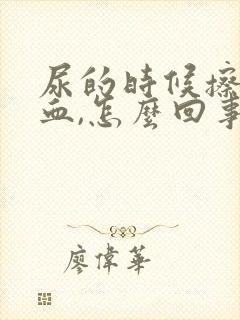 尿的時候擦
血,怎麼回事
廖偉華